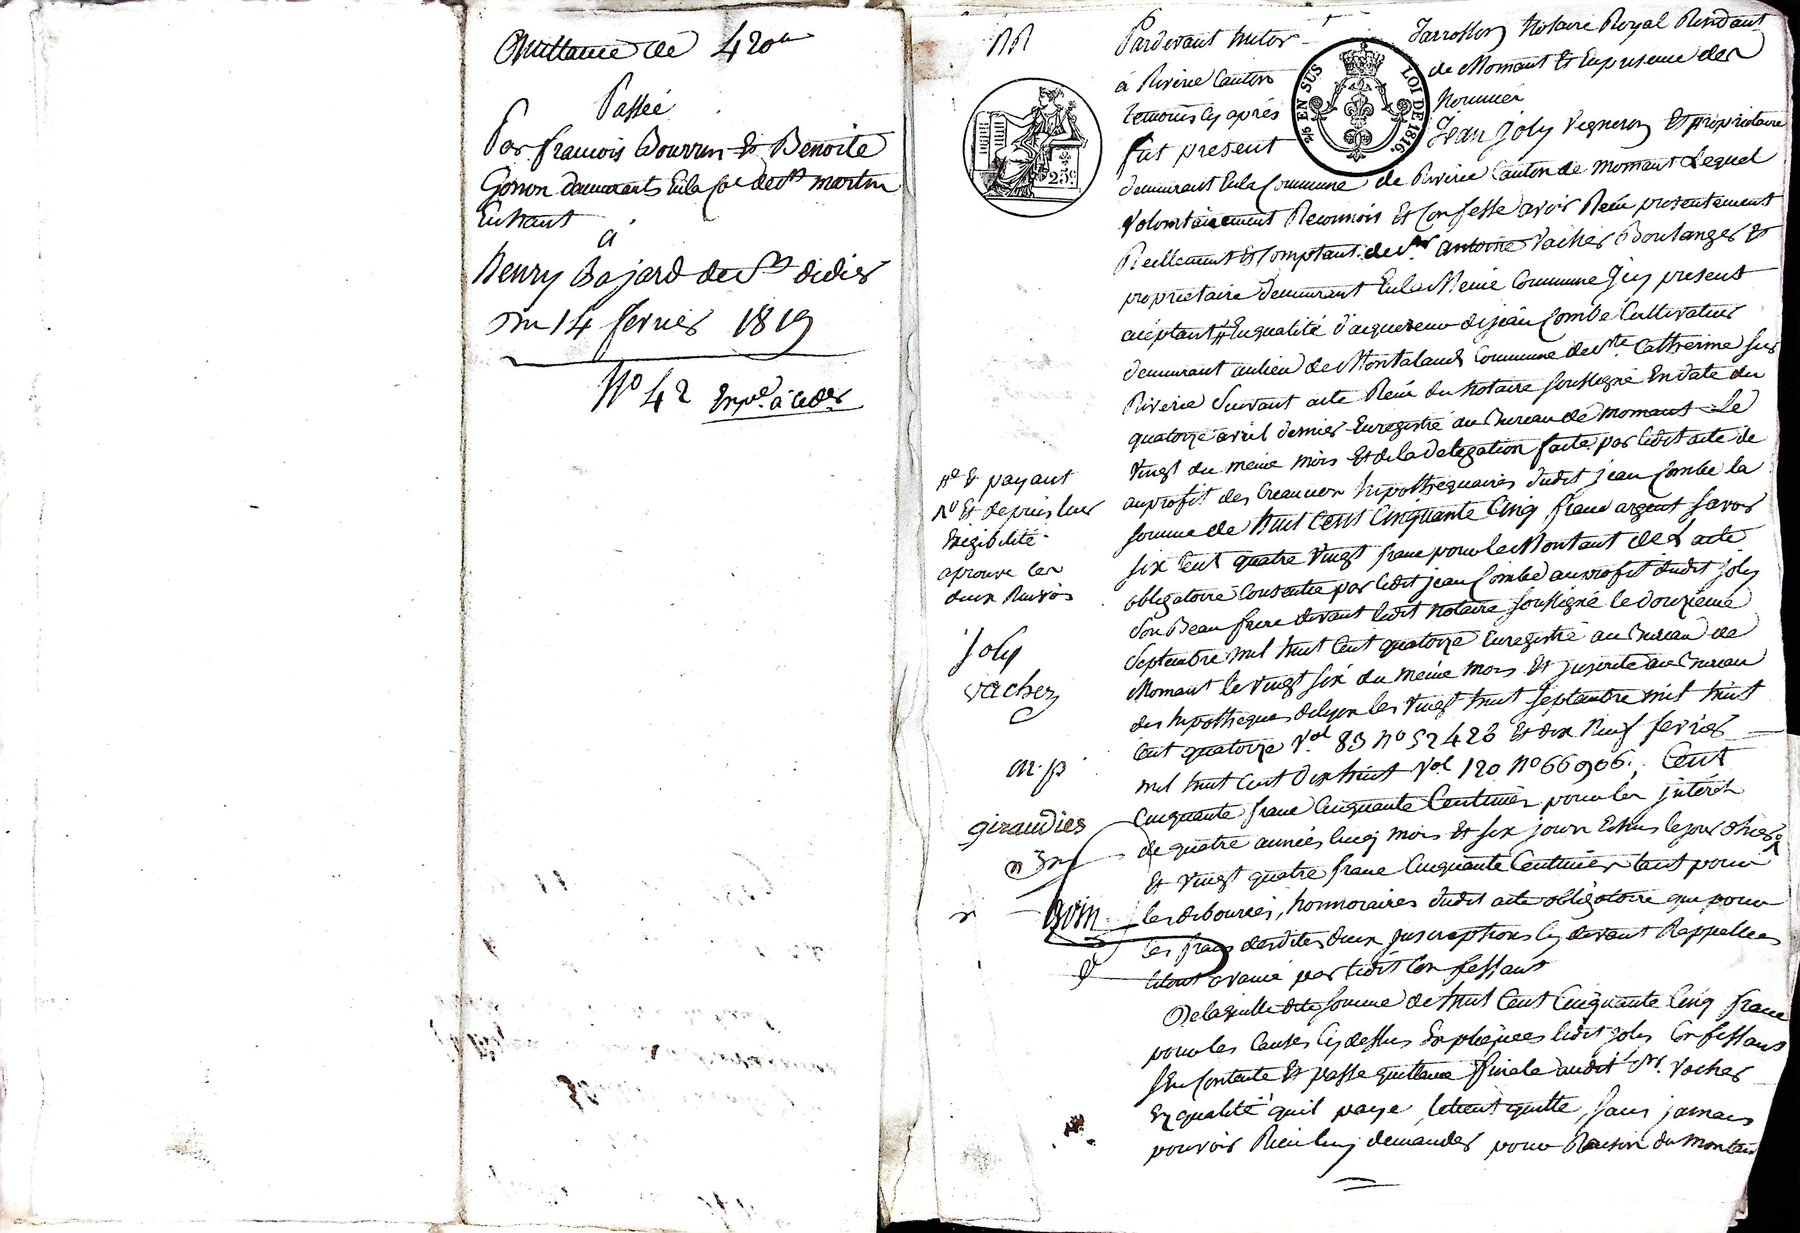 Quittance de 420#
Passée
Par françois Bourrin et Benoite
Gonon demeurants En la Coe de St martin
En haut
à
henry Bajard de St didier
Du 14 fevrier 1819
No 42 Expe. à ceder
Pardevant Me Jarrosson Notaire Royal Resident
à Riverie Canton de Mornant Et En presence des
temoins cy après Nommés
fut present Jean Joly Vigneron Et propriétaire
demeurant En la Commune de Riverie Canton de Mornant Lequel
volontairement Reconnois Et Confesse avoir Reçu presentement
Reellement Et Comptant de Sr. antoine Vacher Boulanger Et
propriétaire demeurant En la Meme Commune Icy present
acéptant Enqualité d'acquereur de jean Combe Cultivateur
demeurant au lieu de Montaland Commune de Ste. Catherine sur
Riverie Suivant acte Reçu du Notaire soussigné En date du
quatorze avril dernier Enregistré au Bureau de Mornant Le
vingt du meme mois Et de la Delegation faite par ledit acte de
au profit des Creanciers hipothequaires dudit jean Combe la
somme de huit Cent Cinquante Cinq franc argent savoir
six Cent quatre vingt franc pour le Montant de L'acte
obligatoire Consentie par ledit jean Combe au profit dudit joly
son Beau frere devant ledit Notaire soussigné le douzieme
Septembre mil huit Cent quatorze Enregistré au Bureau de
Mornant le vingt six du meme mois Et inscrite au Bureau
des hipotheques de Lyon les vingt huit septembre mil huit
Cent quatorze Vol 83 No 52423 Et dix Neuf fevrier
mil huit Cent dix huit Vol 120 No 66906; Cent
Cinquante franc Cinquante Centimes pour les intérêts
de quatre années Cinq mois Et six jours Echus le jour d'hier
Et vingt quatre franc Cinquante Centimes tant pour
les debourcés, honnoraires dudit acte obligatoire que pour
les frais desdites deux Inscriptions cy devant Rappellées
le tout avancé par ledit Confessant
De laquelle dite somme de huit Cent Cinquante Cinq franc
pour les Causes cy dessus Expliquées ledit Joly Confessant
s'En Contente Et passe quittance finale audit Sr. Vacher
En qualité qu'il paye, le tient quitte, sans jamais
pouvoir Rien luy demander pour Raison du montant
RR
25c.
EN SUS
LOI DE 1816.
Et payant
Et depuis leur
Exigibilité
aprouvé les
deux Renvois
Joly
vacher
m.p
giraudier